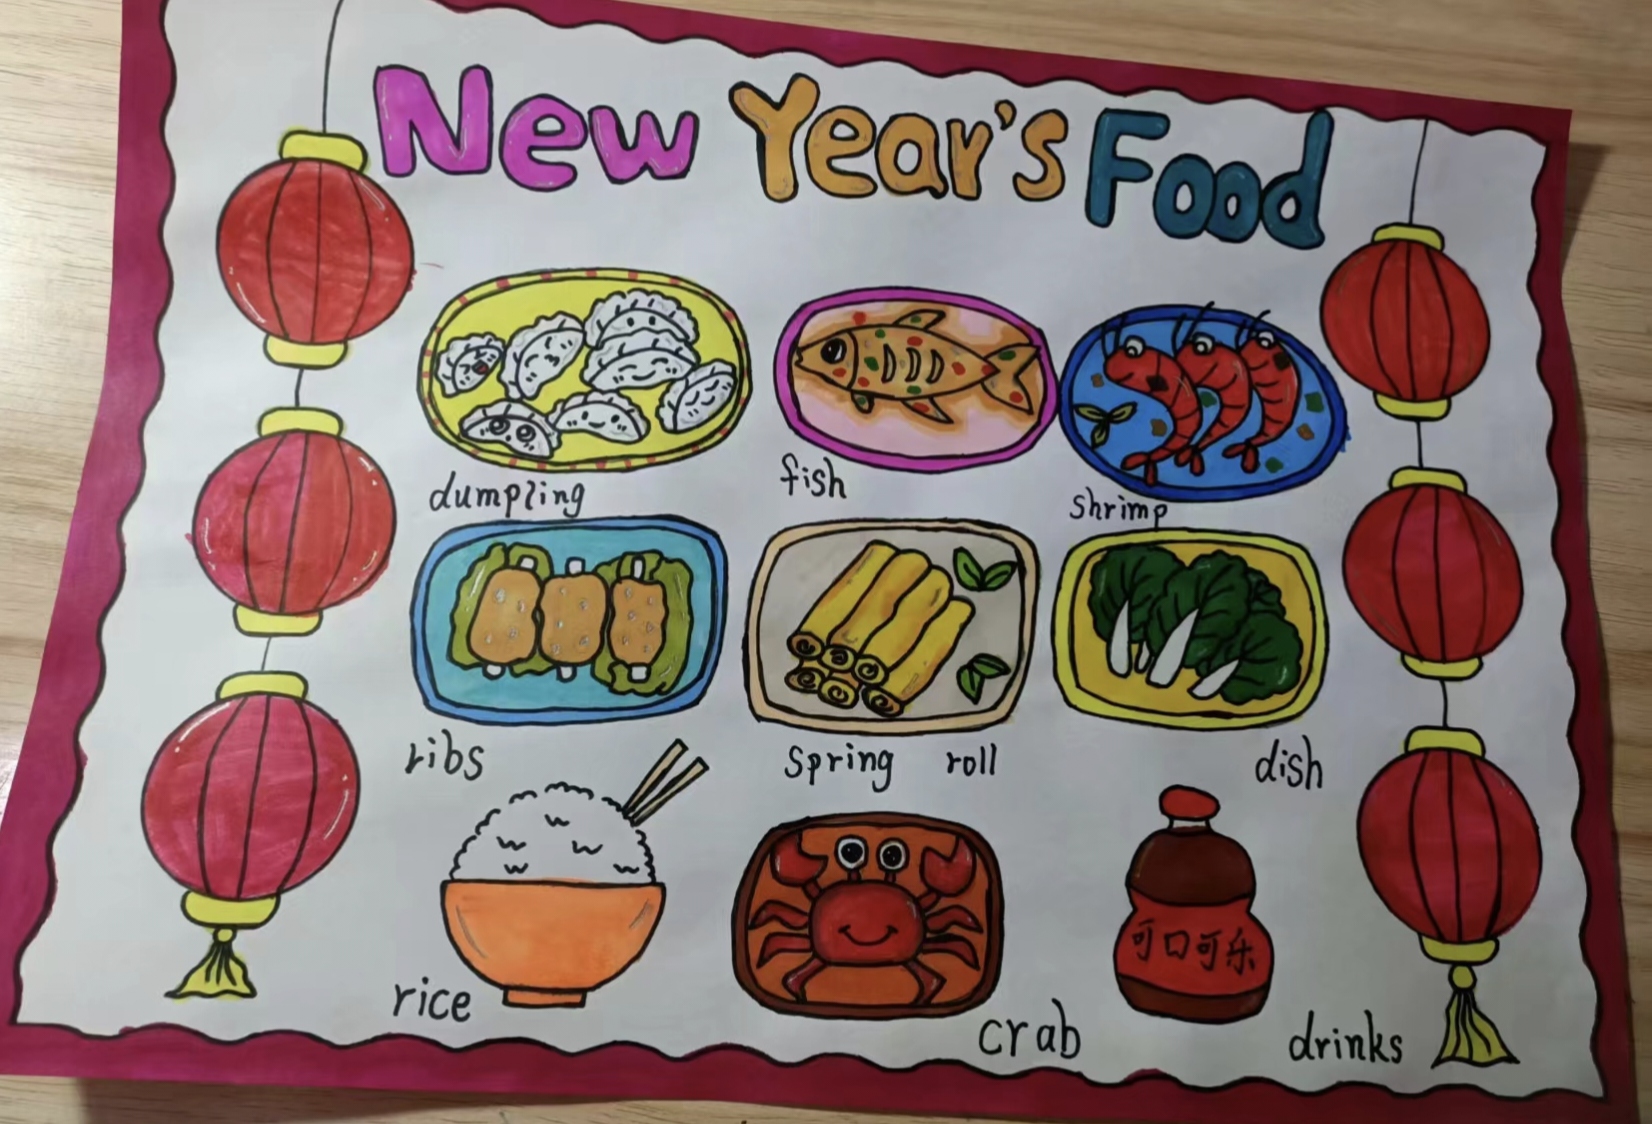 New Year's Food
dumpling
fish
shrimp
ribs
spring roll
dish
可口可乐
rice
crab
drinks